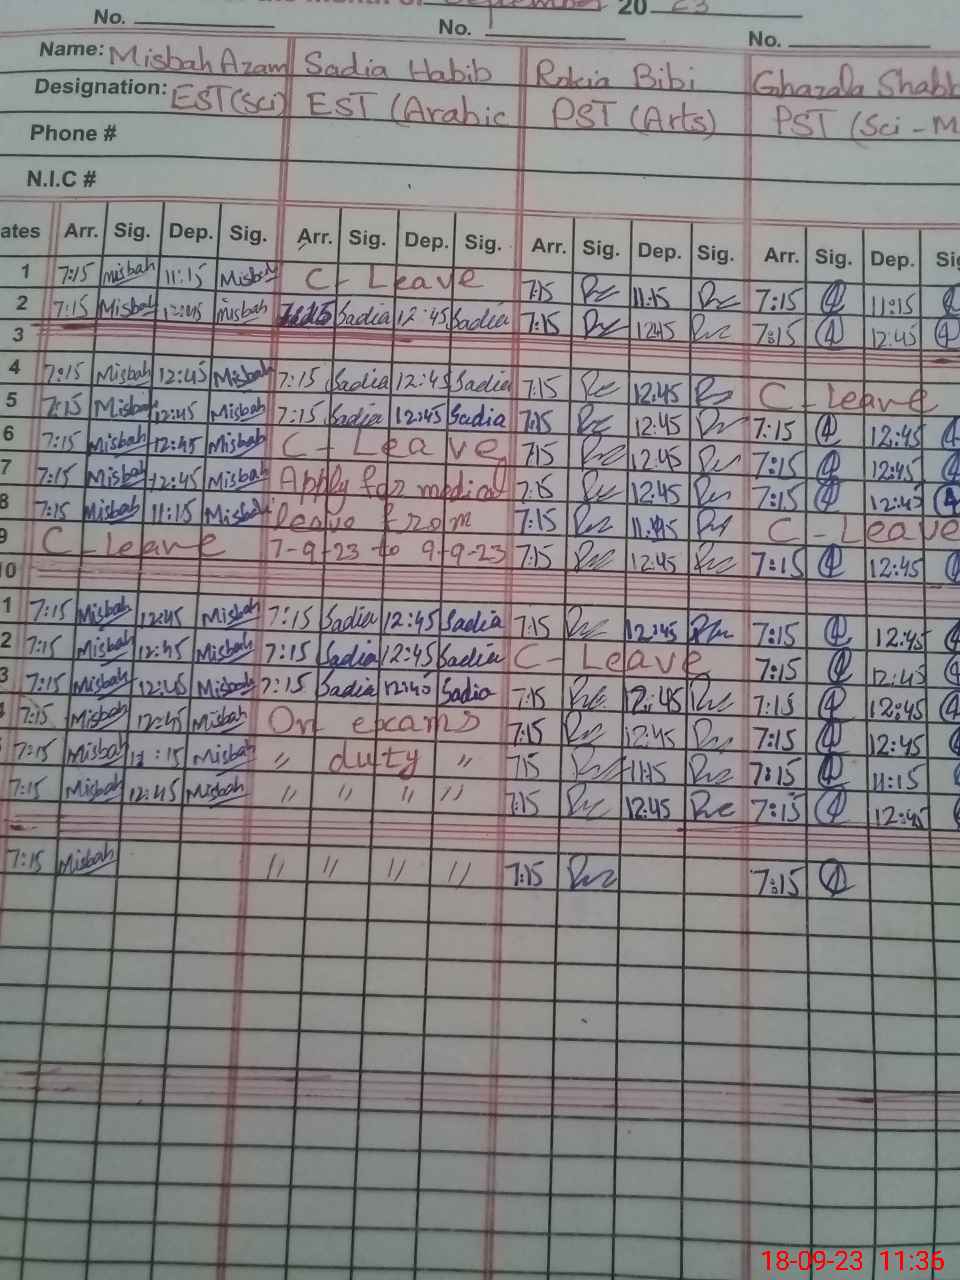 September 20 23
No. No. No.
Name: Misbah Azam Sadia Habib Rokia Bibi Ghazala Shabb
Designation: EST(Sci) EST (Arabic PST (Arts) PST (Sci - M
Phone #
N.I.C #
ates Arr. Sig. Dep. Sig. Arr. Sig. Dep. Sig. Arr. Sig. Dep. Sig. Arr. Sig. Dep. Sig
1 7:15 misbah 11:15 Misbah C - Leave 7:15 11:15 7:15 11:15
2 7:15 Misbah 12:45 misbah 7:15 Sadia 12:45 Sadia 7:15 12:45 7:15 12:45
3
4 7:15 Misbah 12:45 Misbah 7:15 Sadia 12:45 Sadia 7:15 12:45 C - Leave
5 7:15 Misbah 12:45 Misbah 7:15 Sadia 12:45 Sadia 7:15 12:45 7:15 12:45
6 7:15 Misbah 12:45 Misbah C - Leave 7:15 12:45 7:15 12:45
7 7:15 Misbah 12:45 Misbah Apply for medical 7:15 12:45 7:15 12:45
8 7:15 Misbah 11:15 Misbah leave from 7:15 11:15 C - Leave
9 C - Leave 7-9-23 to 9-9-23 7:15 12:45 7:15 12:45
10
1 7:15 Misbah 12:45 Misbah 7:15 Sadia 12:45 Sadia 7:15 12:45 7:15 12:45
2 7:15 Misbah 12:45 Misbah 7:15 Sadia 12:45 Sadia C - Leave 7:15 12:45
3 7:15 Misbah 12:45 Misbah 7:15 Sadia 12:45 Sadia 7:15 12:45 7:15 12:45
7:15 Misbah 12:45 Misbah On exams 7:15 12:45 7:15 12:45
7:15 Misbah 11:15 Misbah " duty " 7:15 11:15 7:15 11:15
7:15 Misbah 12:45 Misbah " " " " 7:15 12:45 7:15 12:45
7:15 Misbah " " " " 7:15 7:15
18-09-23 11:36